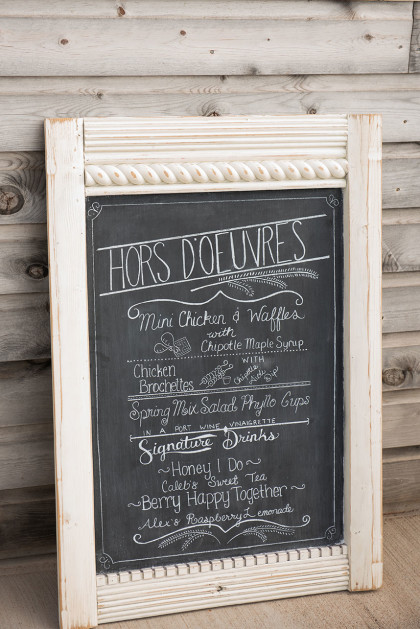 HORS D'OEUVRES
Mini Chicken & Waffles
with
Chipotle Maple Syrup
Chicken
Brochettes
WITH
Chipotle
Aioli
Dip
Spring Mix Salad Phyllo Cups
IN A PORT WINE VINAIGRETTE
Signature Drinks
~Honey I Do~
Caleb's Sweet Tea
~Berry Happy Together~
Alex's Raspberry Lemonade